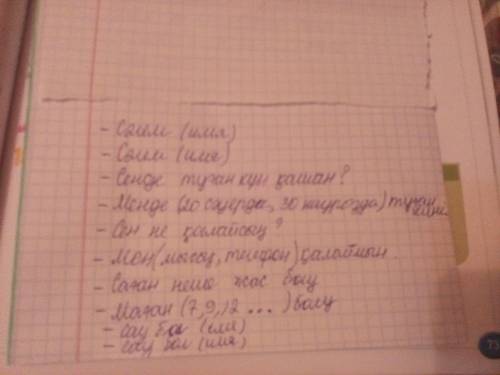 - Сәлем (имя)
- Сәлем (имя)
- Сенде туған күн қашан?
- Менде (20 сәуірде, 30 наурозда) туған күнім
- Сен не қалайсың?
- Мен (мысық, телефон) қалаймын.
- Саған неше жас болу
- Маған (7,9,12 ...) болу
- сау бол (имя)
- сау бол (имя)